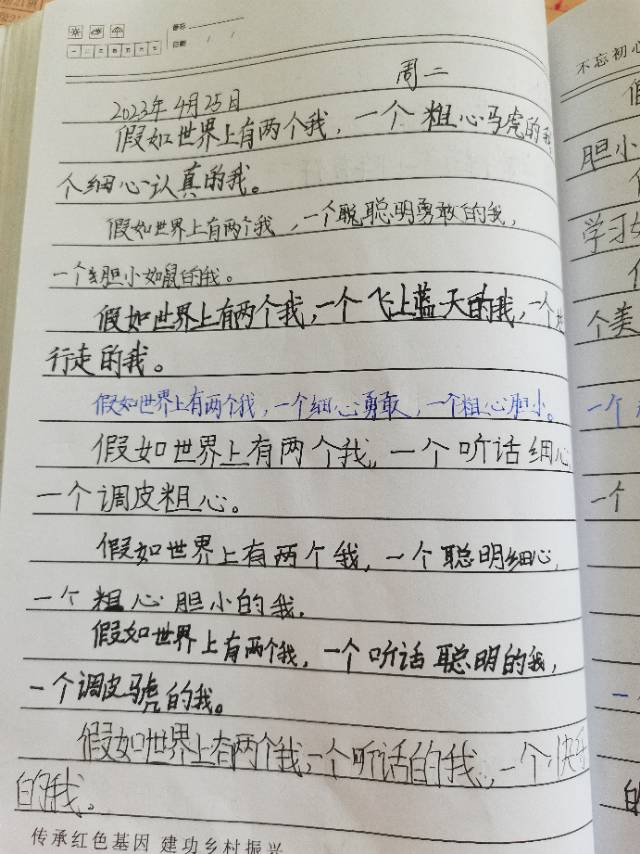 周二
2023年4月25日
假如世界上有两个我，一个粗心马虎的我
个细心认真的我。
假如世界上有两个我，一个聪明勇敢的我，
一个胆小如鼠的我。
假如世界上有两个我，一个飞上蓝天的我，一个
行走的我。
假如世界上有两个我，一个细心勇敢，一个粗心胆小。
假如世界上有两个我，一个听话细心
一个调皮粗心。
假如世界上有两个我，一个聪明细心，
一个粗心胆小的我.
假如世界上有两个我，一个听话聪明的我，
一个调皮马虎的我。
假如世界上有两个我,一个听话的我,一个
的我。
传承红色基因 建功乡村振兴
不忘初心
胆小
学习
个美
一个
一个
的